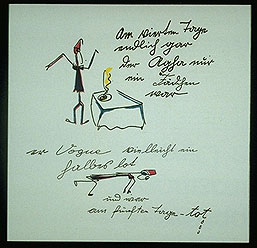 Am vierten Tage
endlich gar
der Agha nur
ein Fädchen
war
er Vogue vielleicht ein
halbes lot
und war
am fünften Tage - tot